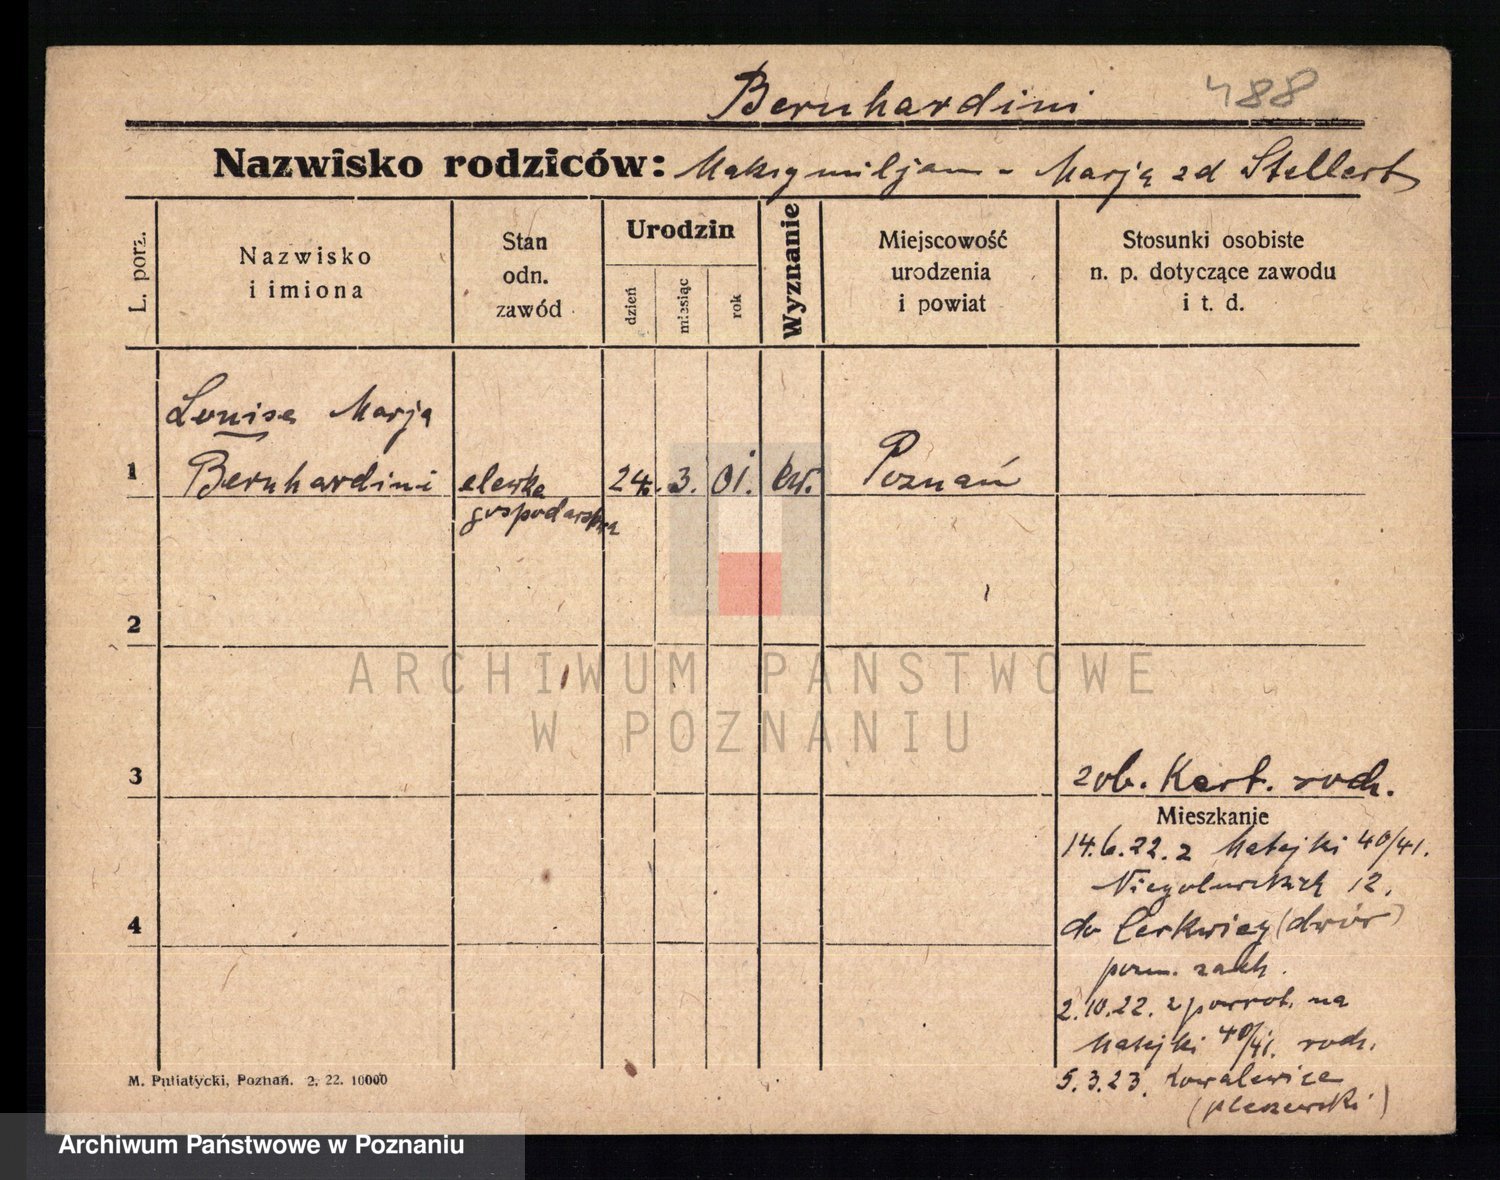 Bernhardini 488
Nazwisko rodziców: Maksymiljan - Marja zd Stellert
L. porz.
Nazwisko
i imiona
Stan
odn.
zawód
Urodzin
dzień
miesiąc
rok
Wyznanie
Miejscowość
urodzenia
i powiat
Stosunki osobiste
n. p. dotyczące zawodu
i t. d.
Louise Marja
1 Bernhardini elewka 24. 3. 01. ew. Poznań
gospodarska
2
ARCHIWUM PAŃSTWOWE
W POZNANIU
3 zob. Kart. rodz.
Mieszkanie
14.6.22. z Matejki 40/41.
Niegolewskich 12.
4 do Cerkwicy (dwór)
pozn. zach.
2.10.22. z powrot. na
Matejki 40/41. rodz.
5.3.23. Kowalewice
(pleszewski)
M. Putiatycki, Poznań. 2, 22. 10000
Archiwum Państwowe w Poznaniu